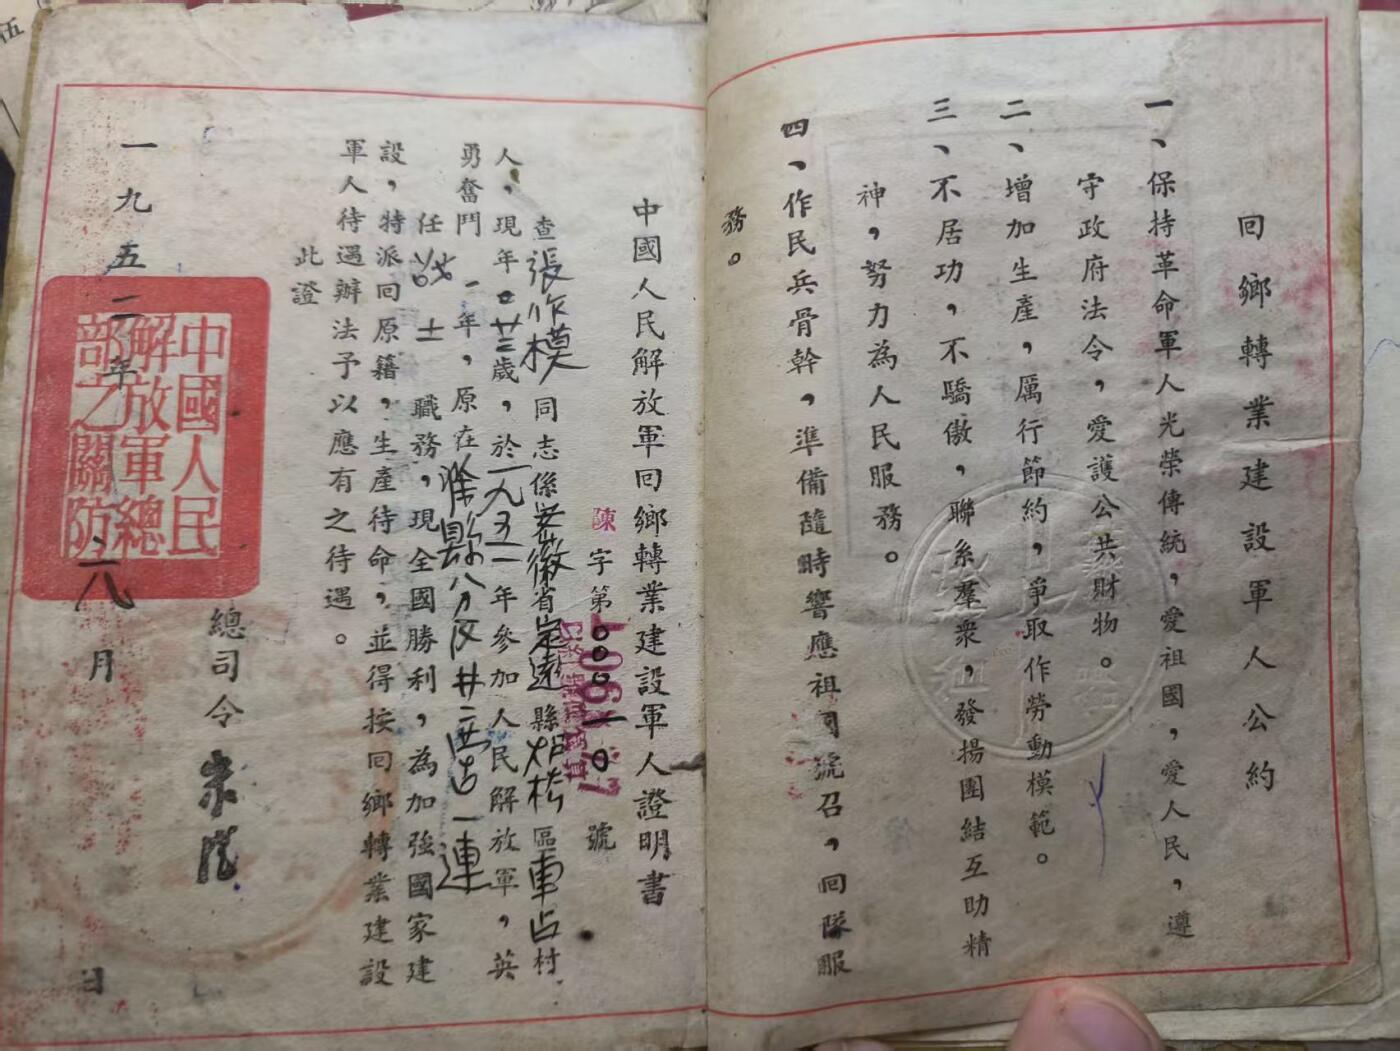 回鄉轉業建設軍人公約
一、保持革命軍人光榮傳統，愛祖國，愛人民，遵
守政府法令，愛護公共財物。
二、增加生產，厲行節約，爭取作勞動模範。
三、不居功，不驕傲，聯系羣衆，發揚團結互助精
神，努力為人民服務。
四、作民兵骨幹，準備隨時響應祖國號召，回隊服
務。
中國人民解放軍回鄉轉業建設軍人證明書
陳字第000一0號
查張作模同志係安徽省定遠縣爐橋區車占村
人，現年廿三歲，於一九五一年參加人民解放軍，英
勇奮鬥一年，原在滁縣分區廿二一連
任战士職務，現全國勝利，為加強國家建
設，特派回原籍，生產待命，並得按回鄉轉業建設
軍人待遇辦法予以應有之待遇。
此證
總司令 朱德
一九五二年 八月 日
中國人民
解放軍總
部之關防